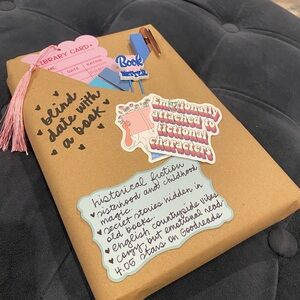 LIBRARY CARD
NAME DATE RATING
Book
blind
date with
a book
emotionally
attached to
fictional
characters
historical fiction
♥ sisterhood and childhood
magic
♥ secret stories hidden in
old books
♥ english countryside vibes
♥ cozy but emotional read
4.06 stars on Goodreads